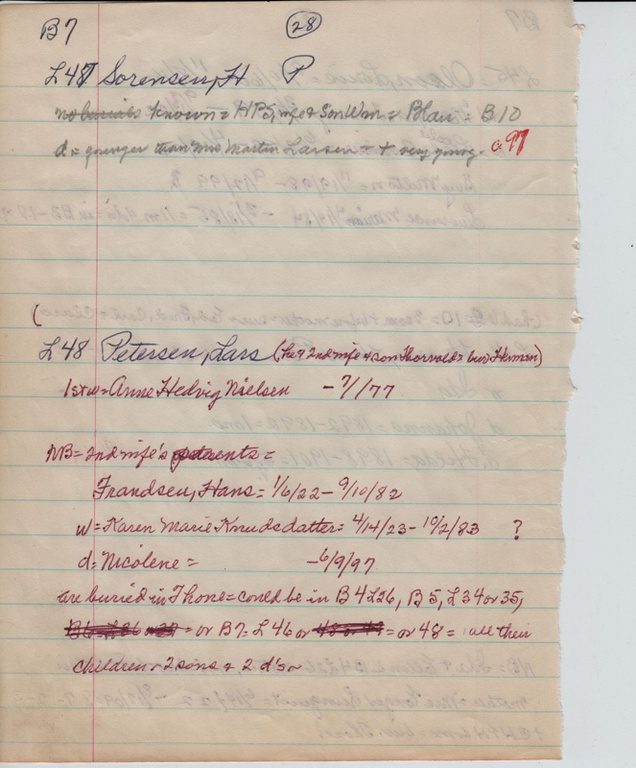 B7 28
L47 Sorensen, H P
no burials known = HPS, wife & Son Wm = Blair = B10
d = younger than Mrs Martin Larsen = + very young. c 97
(
L48 Petersen, Lars (he & 2nd wife & son Thorvald = bur Herman)
1st w = Anne Hedvig Nielsen - 7/1/77
NB = 2nd wife's parents =
Frandsen, Hans = 1/6/22 - 9/10/82
w = Karen Marie Knudsdatter = 4/14/23 - 10/2/83 ?
d = Nicolene = - 6/9/97
are buried in Thone = could be in B4 L26, B5, L34 or 35,
= or B7 = L46 or = or 48 = all their
children = 2 sons & 2 d's =